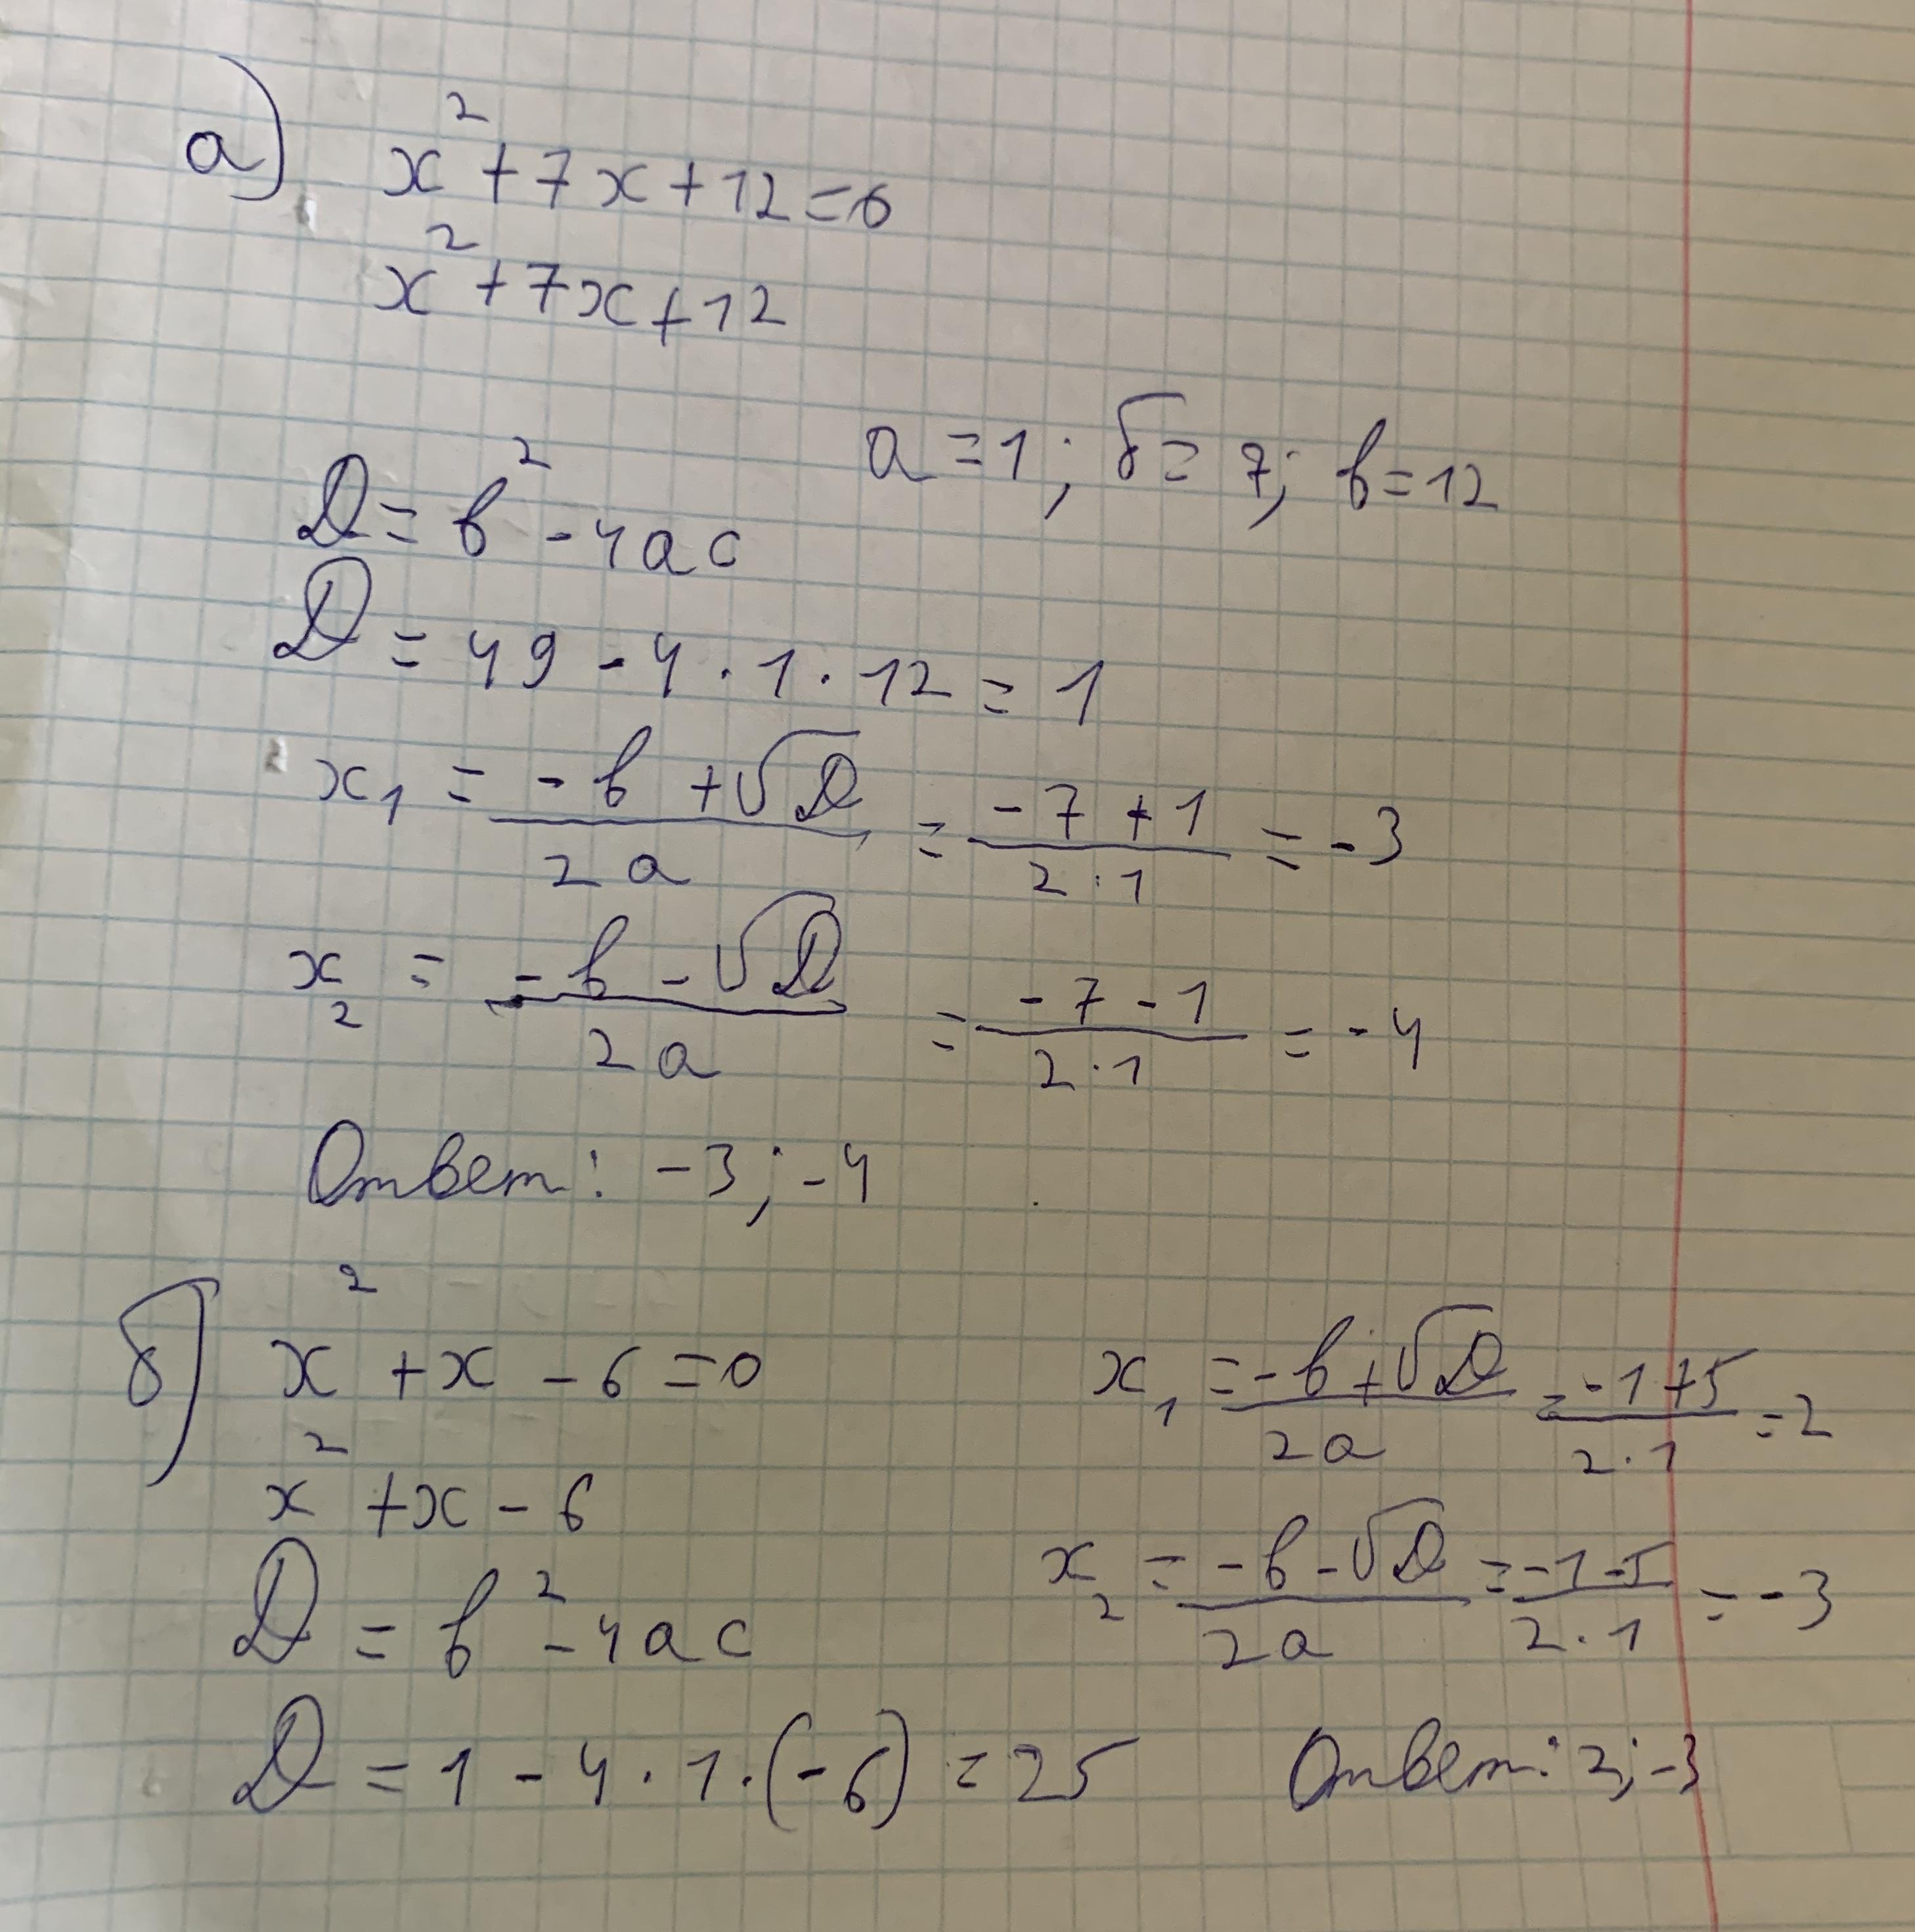 а) x² + 7x + 12 = 0
x² + 7x + 12
a = 1; б = 7; в = 12
D = b² - 4ac
D = 49 - 4 · 1 · 12 = 1
x₁ = (-b + √D)/(2a) = (-7 + 1)/(2 · 1) = -3
x₂ = (-b - √D)/(2a) = (-7 - 1)/(2 · 1) = -4
Ответ: -3; -4
б) x² + x - 6 = 0
x² + x - 6
D = b² - 4ac
D = 1 - 4 · 1 · (-6) = 25
x₁ = (-b + √D)/(2a) = (-1 + 5)/(2 · 1) = 2
x₂ = (-b - √D)/(2a) = (-1 - 5)/(2 · 1) = -3
Ответ: 2; -3